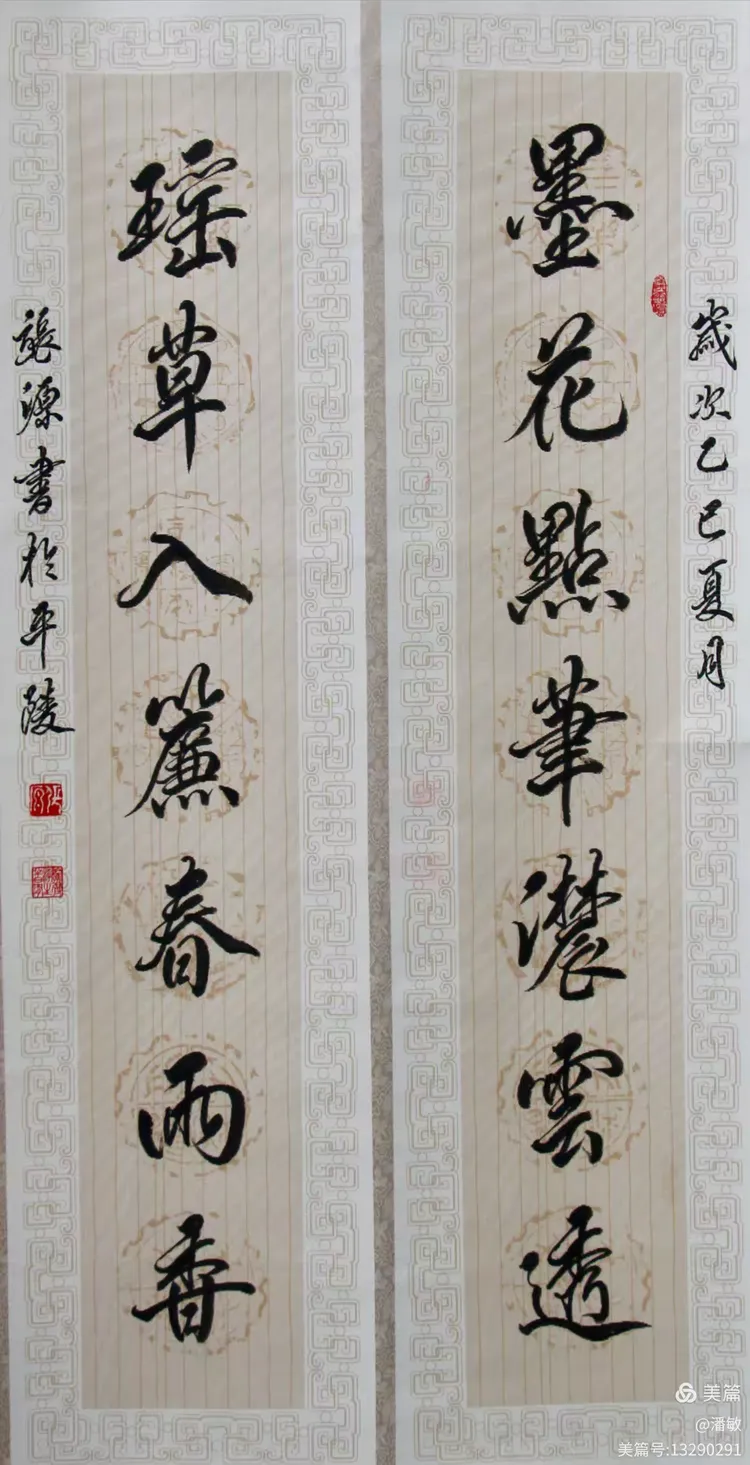 歲次乙巳夏月
墨花點筆濃雲透
瑶草入簾春雨香
張源書於平陵
美篇
@潘敏
美篇号:13290291